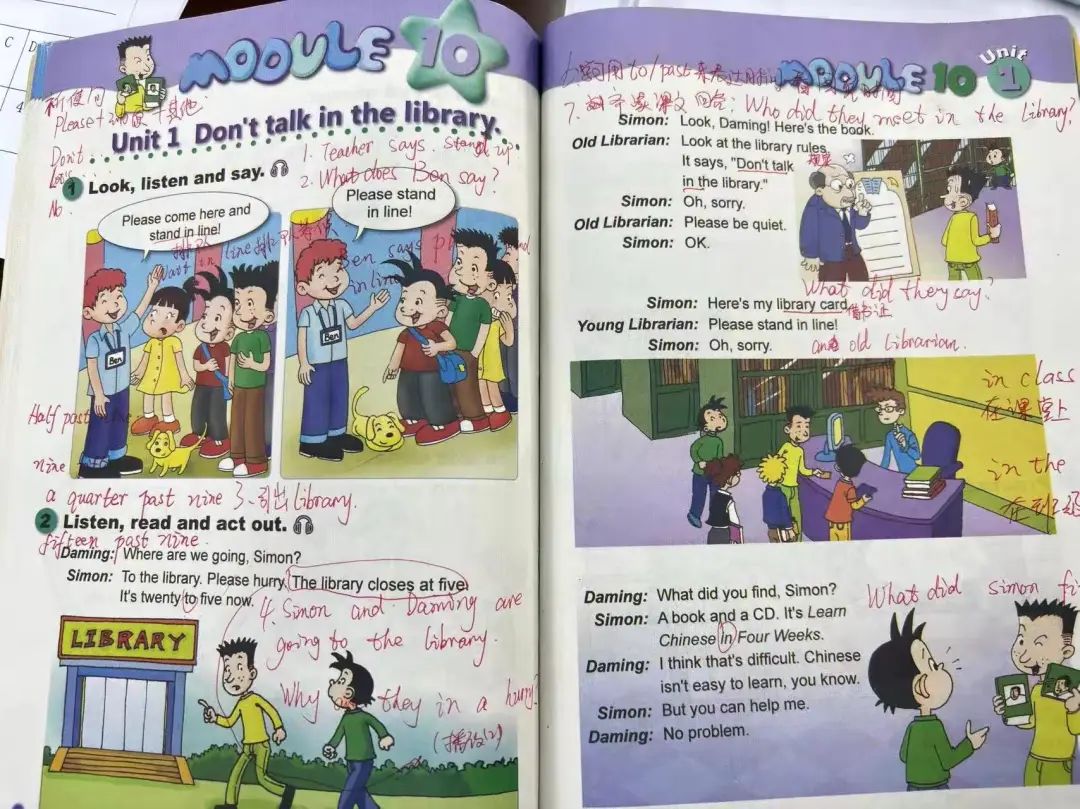 C D
4
MODULE 10
祈使句
Please + 动原 + 其他.
Don't...
Let's...
No.
Unit 1 Don't talk in the library.
1. Teacher says. Stand up.
2. What does Ben say?
1 Look, listen and say.
Please come here and
stand in line!
排队
Wait in line
Please stand
in line!
Ben says
in line
Ben
Ben
Half past nine
nine
a quarter past nine 3、引出library.
2 Listen, read and act out.
fifteen past nine.
Daming: Where are we going, Simon?
Simon: To the library. Please hurry. The library closes at five.
It's twenty to five now.
4. Simon and Daming are
going to the library.
LIBRARY
Why they in a hurry?
MODULE 10 Unit 1
to/past
7. Who did they meet in the library?
Simon: Look, Daming! Here's the book.
Old Librarian: Look at the library rules.
It says, "Don't talk
规章
in the library."
Simon: Oh, sorry.
Old Librarian: Please be quiet.
Simon: OK.
What did they say?
Simon: Here's my library card.
借书证
Young Librarian: Please stand in line!
Simon: Oh, sorry.
old Librarian.
in class
在课堂上
in the
Daming: What did you find, Simon?
What did simon fi
Simon: A book and a CD. It's Learn
Chinese in Four Weeks.
Daming: I think that's difficult. Chinese
isn't easy to learn, you know.
Simon: But you can help me.
Daming: No problem.